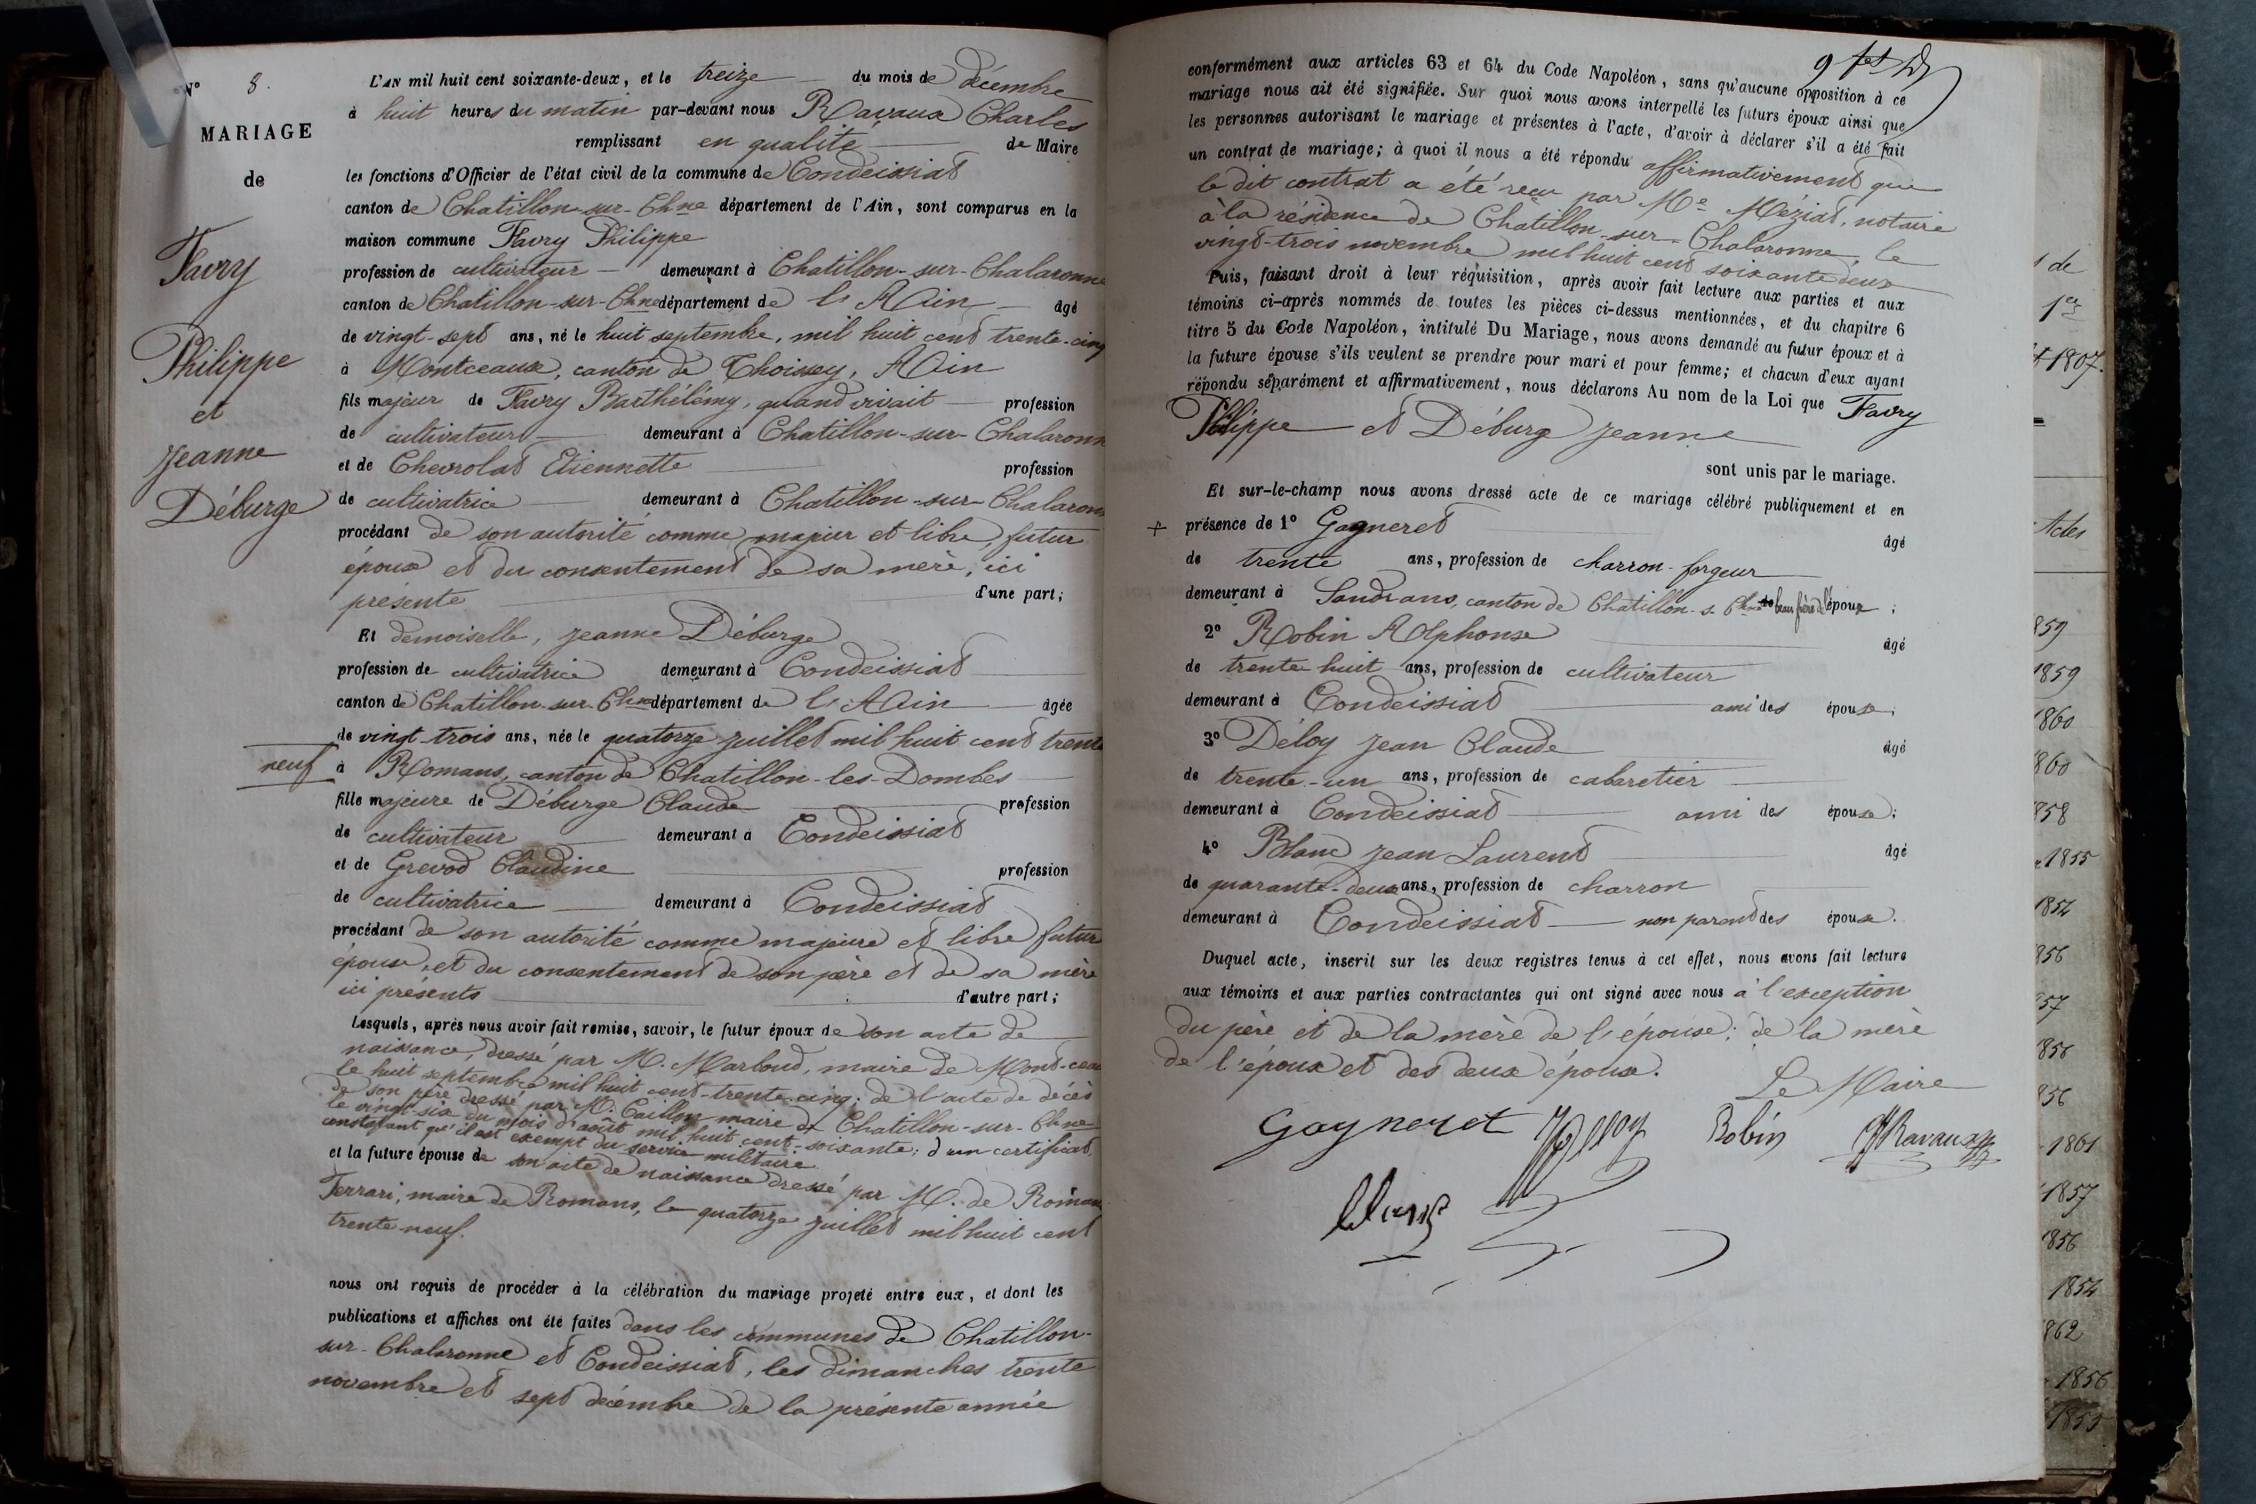 N° 8.
MARIAGE
de
Favry
Philippe
et
Jeanne
Déburge
L'AN mil huit cent soixante-deux, et le treize du mois de décembre
à huit heures du matin par-devant nous Ravaux Charles
remplissant en qualité de Maire
les fonctions d'Officier de l'état civil de la commune de Condeissiat
canton de Chatillon-sur-Chne département de l'Ain, sont comparus en la
maison commune Favry Philippe
profession de cultivateur demeurant à Chatillon-sur-Chalaronne
canton de Chatillon-sur-Chne département de l'Ain âgé
de vingt-sept ans, né le huit septembre, mil huit cent trente-cinq
à Montceaux, canton de Thoissey, Ain
fils majeur de Favry Barthélemy, quand vivait profession
de cultivateur demeurant à Chatillon-sur-Chalaronn
et de Chevrolat Etiennette profession
de cultivatrice demeurant à Chatillon-sur-Chalaronn
procédant de son autorité comme majeur et libre, futur
époux et du consentement de sa mère, ici
présente d'une part;
Et demoiselle, Jeanne Déburge
profession de cultivatrice demeurant à Condeissiat
canton de Chatillon-sur-Chne département de l'Ain âgée
de vingt-trois ans, née le quatorze juillet mil huit cent trente
neuf à Romans, canton de Chatillon-les-Dombes
fille majeure de Déburge Claude profession
de cultivateur demeurant à Condeissiat
et de Grevod Claudine profession
de cultivatrice demeurant à Condeissiat
procédant de son autorité comme majeure et libre future
épouse, et du consentement de son père et de sa mère
ici présents d'autre part;
Lesquels, après nous avoir fait remise, savoir, le futur époux de son acte de
naissance, dressé par M. Marboud, maire de Mont-ceau
le huit septembre mil huit cent-trente-cinq; de l'acte de décès
de son père dressé par M. Caillon maire de Chatillon-sur-Chne
le vingt-six du mois d'août mil huit cent-soixante; d'un certificat
constatant qu'il est exempt du service militaire
et la future épouse de son acte de naissance dressé par M. de Romans
Ferrari, maire de Romans, le quatorze juillet mil huit cent
trente-neuf.
nous ont requis de procéder à la célébration du mariage projeté entre eux, et dont les
publications et affiches ont été faites dans les communes de Chatillon-
sur-Chalaronne et Condeissiat, les dimanches trente
novembre et sept décembre de la présente année
conformément aux articles 63 et 64 du Code Napoléon, sans qu'aucune opposition à ce
mariage nous ait été signifiée. Sur quoi nous avons interpellé les futurs époux ainsi que
les personnes autorisant le mariage et présentes à l'acte, d'avoir à déclarer s'il a été fait
un contrat de mariage; à quoi il nous a été répondu affirmativement que
le dit contrat a été reçu par Me Méziat, notaire
à la résidence de Chatillon-sur-Chalaronne, le
vingt-trois novembre mil huit cent soixante deux
Puis, faisant droit à leur réquisition, après avoir fait lecture aux parties et aux
témoins ci-après nommés de toutes les pièces ci-dessus mentionnées, et du chapitre 6
titre 5 du Code Napoléon, intitulé Du Mariage, nous avons demandé au futur époux et à
la future épouse s'ils veulent se prendre pour mari et pour femme; et chacun d'eux ayant
répondu séparément et affirmativement, nous déclarons Au nom de la Loi que Favry
Philippe et Déburge Jeanne
sont unis par le mariage.
Et sur-le-champ nous avons dressé acte de ce mariage célébré publiquement et en
+ présence de 1° Gagneret âgé
de trente ans, profession de charron-forgeur
demeurant à Sandrans, canton de Chatillon-s-Chne beau frère de l'époux;
2° Robin Alphonse âgé
de trente huit ans, profession de cultivateur
demeurant à Condeissiat ami des époux;
3° Déloy Jean Claude âgé
de trente-un ans, profession de cabaretier
demeurant à Condeissiat ami des époux;
4° Blanc Jean Laurent âgé
de quarante-deux ans, profession de charron
demeurant à Condeissiat non parent des époux.
Duquel acte, inscrit sur les deux registres tenus à cet effet, nous avons fait lecture
aux témoins et aux parties contractantes qui ont signé avec nous à l'exception
du père et de la mère de l'épouse; de la mère
de l'époux et des deux époux.
Le Maire
Gagneret Robin Ravaux
s de
1er
1807.
Actes
859
1859
1860
860
858
1855
1854
856
857
856
1861
1857
1856
1854
862
1856
1855